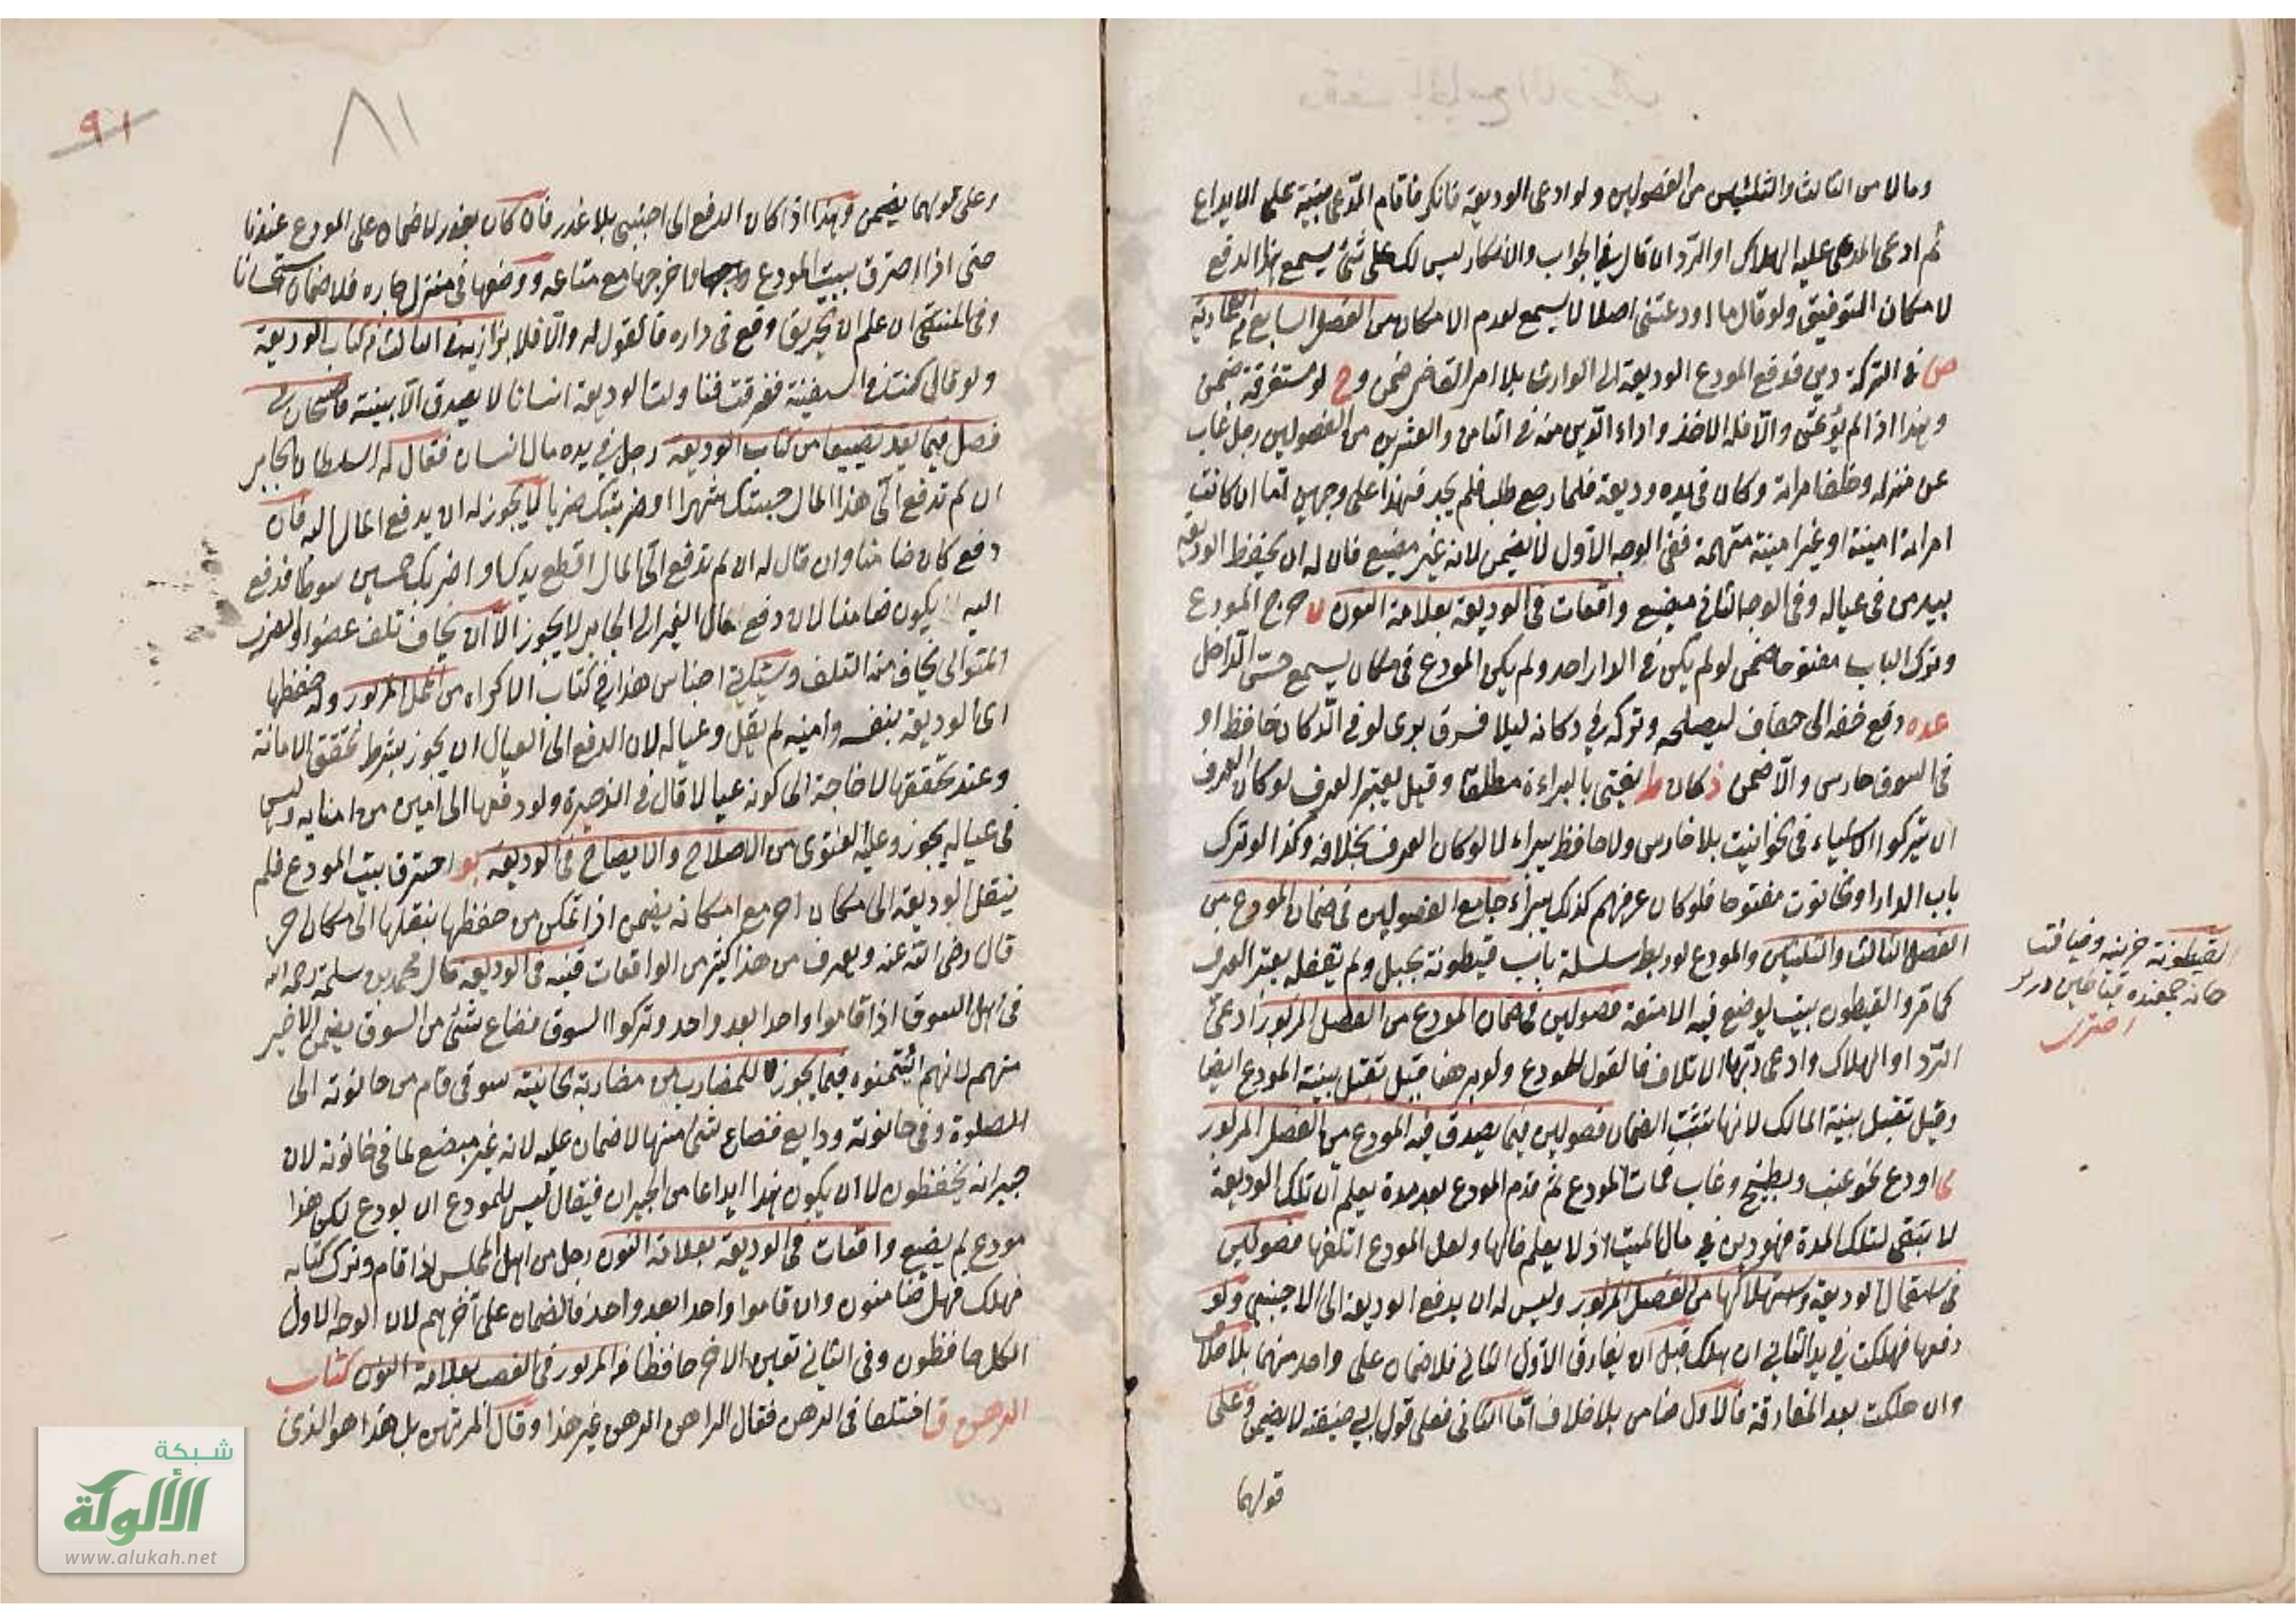 ومالا من الثالث والثلثين من الفصولين ولو ادعى الوديعة فانكر فاقام المدعى بينة على الايداع
ثم ادعى المدعى عليه الهلاك او الرد ان قال في الجواب والانكار ليس لك على شئ يسمع هذا الدفع
لامكان التوفيق ولو قال ما اودعتنى اصلا لا يسمع لعدم الامكان من الفصل السابع من العمادية
ص فى التركة دين فدفع المودع الوديعة الى الوارث بلا امر القاضى ضمن وح لو مستغرقة ضمن
وهذا اذا لم يؤتمن والا فله الاخذ واداء الدين منه فى الثامن والعشرين من الفصولين رجل غاب
عن منزله وخلف امراته وكان فى يده وديعة فلما رجع طلبها فلم يجد فهذا على وجهين اما ان كانت
امراته امينة او غير امينة متهمة ففى الوجه الاول لا يضمن لانه غير مضيع فان له ان يحفظ الوديعة
بيد من فى عياله وفى الوجه الثانى مضيع واقعات فى الوديعة بعلامة النون خرج المودع
وترك الباب مفتوحا ضمن لو لم يكن فى الدار احد ولم يكن المودع فى مكان يسمع حس الداخل
عده دفع خفه الى خفاف ليصلحه وتركه فى دكانه ليلا فسرق برى لو فى الدكان حافظ او
فى السوق حارس والا ضمن وكان ط يفتى بالبراءة مطلقا وقيل يعتبر العرف لو كان العرف
ان يتركوا الاشياء فى الحوانيت بلا حارس ولا حافظ يبراء لا لو كان العرف بخلافه وكذا لو ترك
باب الدار او الحانوت مفتوحا فلو كان عرفهم كذلك يبراء جامع الفصولين فى ضمان المودع من
الفصل الثالث والثلثين والمودع لو ربط سلسلة باب قيطونه بحبل ولم يقفله يعتبر العرف
كما مر والقيطون بيت يوضع فيه الامتعة فصولين فى ضمان المودع من الفصل المزبور ادعى
الرد او الهلاك وادعى ربها الاتلاف فالقول للمودع ولو برهنا قيل تقبل بينة المودع ايضا
وقيل تقبل بينة المالك لانها تثبت الضمان فصولين فيما يصدق فيه المودع من الفصل المزبور
اودع نحو عنب وبطيخ وغاب فمات المودع ثم قدم المودع بعد مدة يعلم ان تلك الوديعة
لا تبقى لتلك المدة فهو دين فى مال الميت اذ لا يعلم حالها ولعل المودع اتلفها فصولين
فى استعمال الوديعة واستهلاكها من الفصل المزبور وليس له ان يدفع الوديعة الى الاجنبى ولو
دفعها فهلكت فى يد الثانى ان هلك قبل ان يفارق الاول الثانى فلا ضمان على واحد منهما بلا خلاف
وان هلكت بعد المفارقة فالاول ضامن بلا خلاف اما الثانى فعلى قول ابى حنيفة لا يضمن وعلى
قولهما
القيطونة خزينه وضيافت
خانه جمعنده قياطين درلر
اختري
٩١
٨١
وعلى قولهما يضمن وهذا اذا كان الدفع الى اجنبى بلا عذر فان كان بعذر لا ضمان على المودع عندنا
حتى اذا احترق بيت المودع فاخرجها مع متاعه ووضعها فى منزل جاره فلا ضمان استحسانا
وفى المنتقى ان علم ان الحريق وقع فى داره فالقول له والا فلا بزازيه فى الثالث من كتاب الوديعة
ولو قال كنت فى السفينة فغرقت فناولت الوديعة انسانا لا يصدق الا ببينة قاضيخان فى
فصل فيما يعد تضييعا من كتاب الوديعة رجل فى يده مال انسان فقال له السلطان الجابر
ان لم تدفع الى هذا المال حبستك شهرا او ضربتك ضربا لا يجوز له ان يدفع المال اليه فان
دفع كان ضامنا وان قال له ان لم تدفع الى المال اقطع يدك او اضربك خمسين سوطا فدفع
اليه لا يكون ضامنا لان دفع مال الغير الى الجابر لا يجوز الا ان يخاف تلف عضو او الضرب
المتوالى يخاف منه التلف وسيأتى اجناس هذا فى كتاب الاكراه من المحل المزبور وله حفظها
اى الوديعة بنفسه وامينه لم يقل وعياله لان الدفع الى العيال ان يجوز بشرط تحقق الامانة
وعند تحققها لا حاجة الى كونه عيالا قال فى الذخيرة ولو دفعها الى امين من امنايه وليس
فى عياله يجوز وعليه الفتوى من الاصلاح والايضاح فى الوديعة بو احترق بيت المودع فلم
ينقل الوديعة الى مكان اخر مع امكانه يضمن اذا تمكن من حفظها بنقلها الى مكان اخر
قال رضى الله عنه ويعرف من هذا كثير من الواقعات قنيه فى الوديعة قال محمد بن سلمة رحمه الله
فى اهل السوق اذا قاموا واحدا بعد واحد وتركوا السوق فضاع شئ من السوق يضمن الاخير
منهم لانهم ائتمنوه فيما يجوز للمضارب من مضاربة خانية سوقى قام من حانوته الى
الصلوة وفى حانوته ودايع فضاع شئ منها لا ضمان عليه لانه غير مضيع لما فى حانوته لان
جيرانه يحفظون لا ان يكون هذا ايداعا من الجيران فيقال ليس للمودع ان يودع لكن هذا
مودع لم يضيع واقعات فى الوديعة بعلامة النون رجل من اهل المجلس اذا قام وترك كتابه
فهلك فهل ضامنون وان قاموا واحدا بعد واحد فالضمان على آخرهم لان الوجه الاول
الكل حافظون وفى الثانى تعين الاخر حافظا من المزبور فى الغصب بعلامة النون كتاب
الرهن ق اختلفا فى الرهن فقال الراهن الرهن غير هذا وقال المرتهن بل هذا هو الذى
شبكة
الألوكة
www.alukah.net